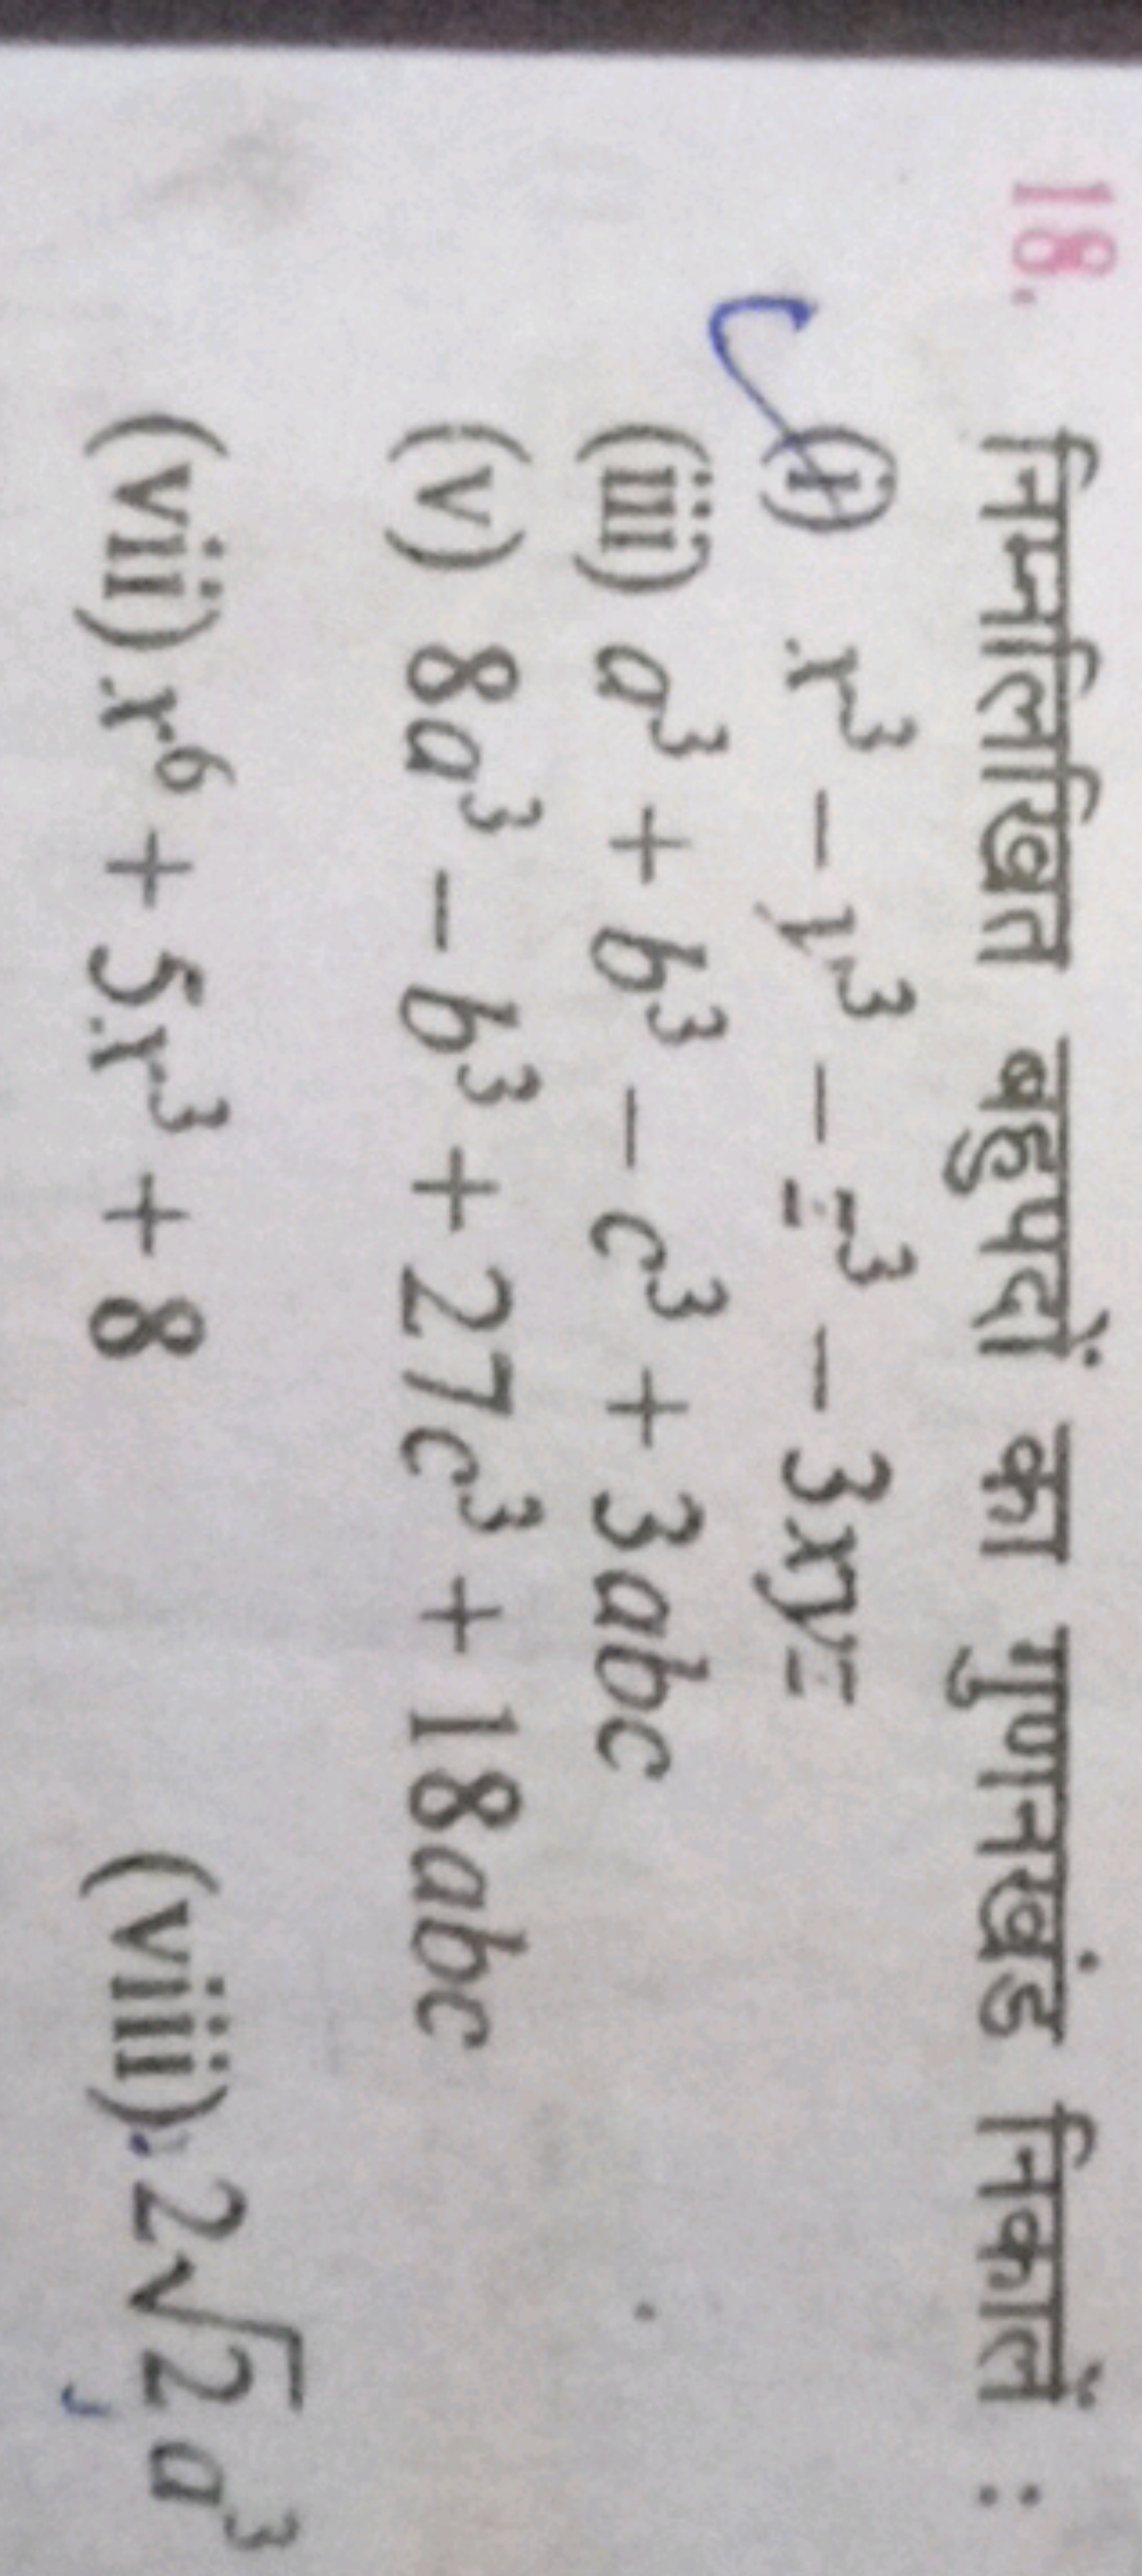 18. निम्नलिखित बहुपदों का गुणनखंड निकालें :
(i) x³ – y³ – z³ – 3xyz
(iii) a³ + b³ – c³ + 3abc
(v) 8a³ – b³ + 27c³ + 18abc
(vii) x⁶ + 5x³ + 8 (viii) 2√2a³